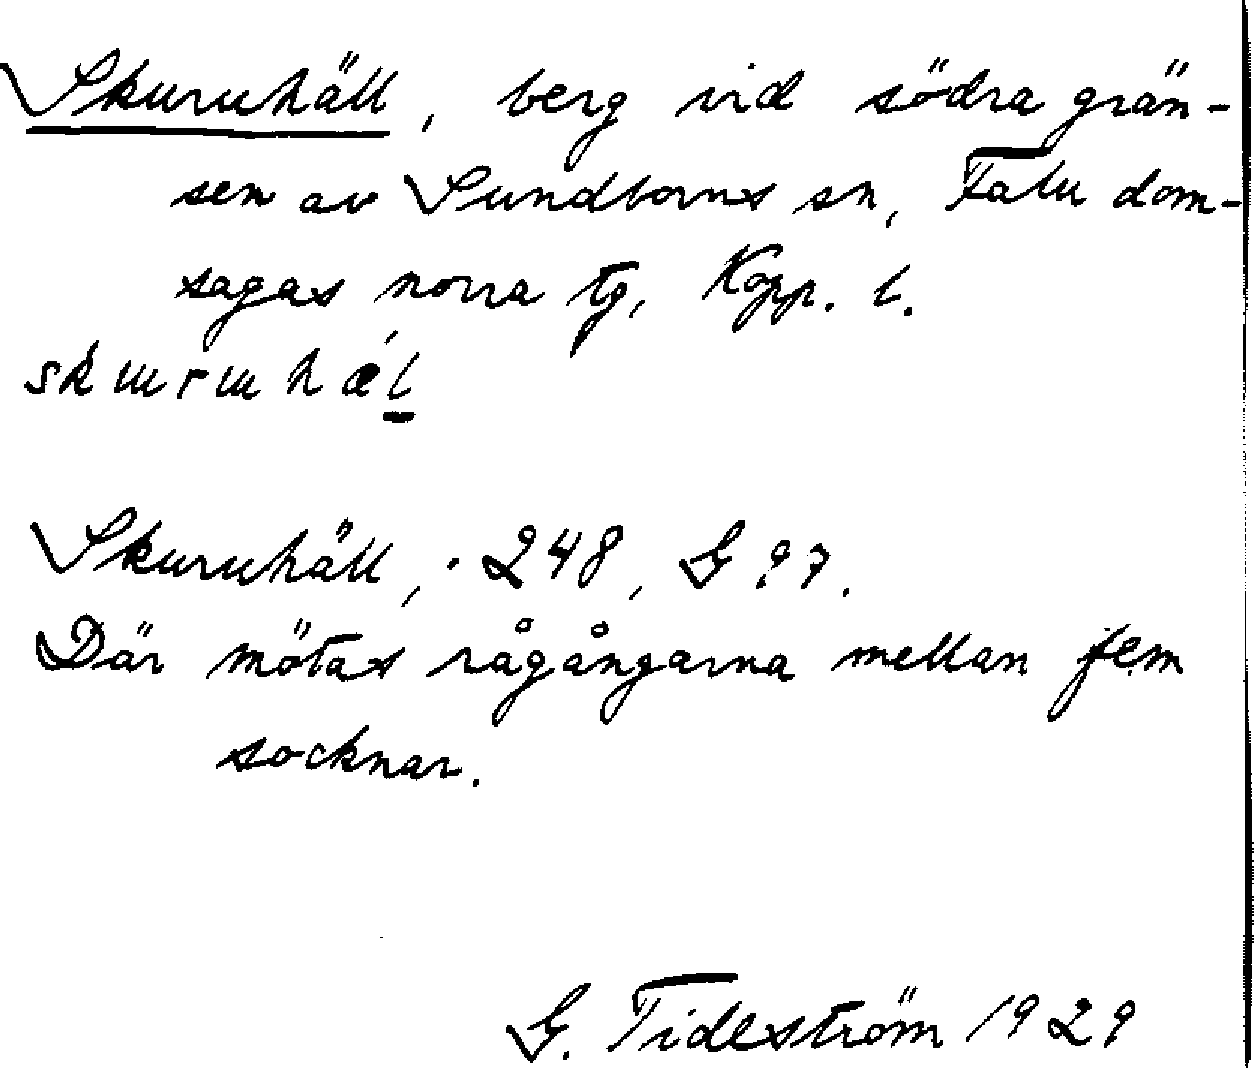 Skuruhäll, berg vid södra grän-
sen av Sundborns sn, Falu dom-
sagas norra tg, Kopp. l.
skɯrɯhæ̀l̲
Skuruhäll, · 248, G 97.
Där mötas rågångarna mellan fem
socknar.
G. Tideström 1929